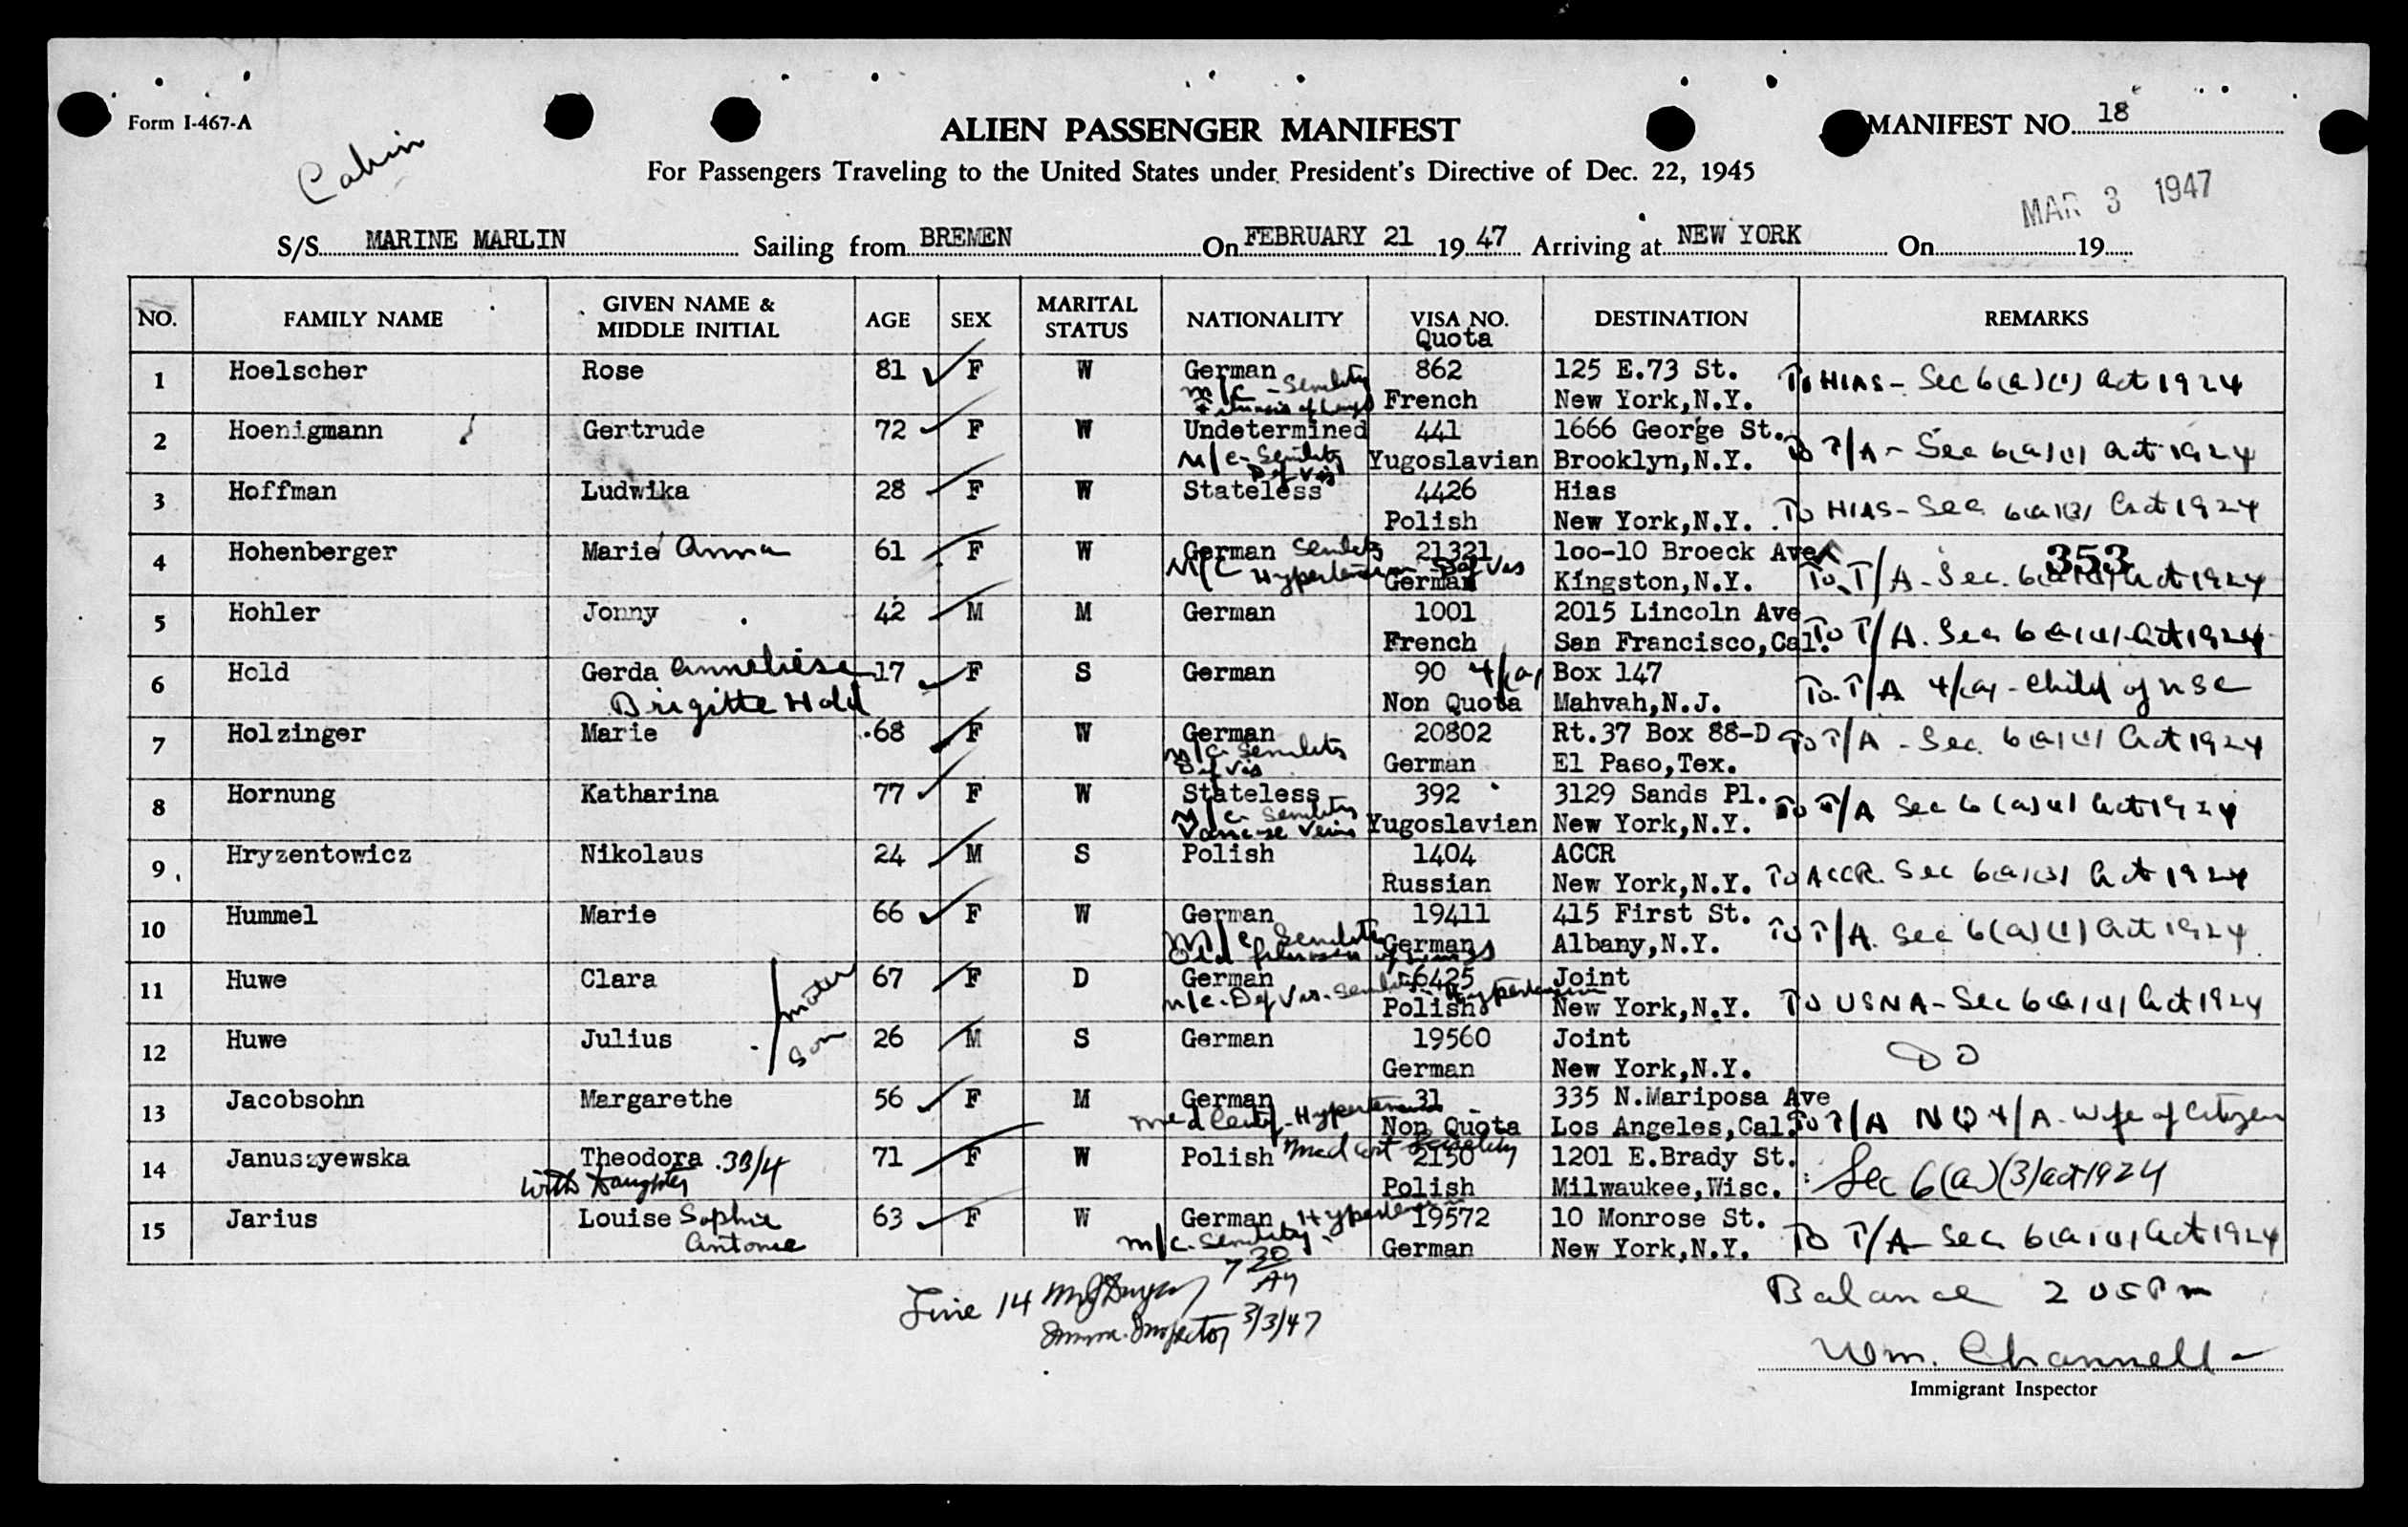 Form I-467-A
Cabin
ALIEN PASSENGER MANIFEST
MANIFEST NO. 18
For Passengers Traveling to the United States under President's Directive of Dec. 22, 1945
MAR 3 1947
S/S MARINE MARLIN Sailing from BREMEN On FEBRUARY 21 19 47 Arriving at NEW YORK On 19
NO. FAMILY NAME GIVEN NAME & MIDDLE INITIAL AGE SEX MARITAL STATUS NATIONALITY VISA NO. Quota DESTINATION REMARKS
1 Hoelscher Rose 81 F W German 862 125 E.73 St. To HIAS - Sec 6(a)(1) Act 1924
M/C - Senility French New York,N.Y.
2 Hoenigmann Gertrude 72 F W Undetermined 441 1666 George St. To T/A - Sec 6(a)(1) Act 1924
M/C - Senility Def Vis Yugoslavian Brooklyn,N.Y.
3 Hoffman Ludwika 28 F W Stateless 4426 Hias To HIAS - Sec 6(a)(3) Act 1924
Polish New York,N.Y.
4 Hohenberger Marie Anna 61 F W German Senility 21321 loo-10 Broeck Ave. 353
M/C Hypertension Def Vis German Kingston,N.Y. To T/A - Sec. 6(a)(1) Act 1924
5 Hohler Jonny 42 M M German 1001 2015 Lincoln Ave To T/A. Sec 6(a)(1) Act 1924
French San Francisco,Cal.
6 Hold Gerda Anneliese 17 F S German 90 4/(a) Box 147 To T/A 4/(a) - Child of USC
Brigitte Hold Non Quota Mahvah,N.J.
7 Holzinger Marie 68 F W German 20802 Rt.37 Box 88-D To T/A - Sec. 6(a)(1) Act 1924
M/C Senility Def Vis German El Paso,Tex.
8 Hornung Katharina 77 F W Stateless 392 3129 Sands Pl. To T/A Sec 6(a)(1) Act 1924
M/C Senility Varicose Veins Yugoslavian New York,N.Y.
9 Hryzentowicz Nikolaus 24 M S Polish 1404 ACCR To ACCR. Sec 6(a)(3) Act 1924
Russian New York,N.Y.
10 Hummel Marie 66 F W German 19411 415 First St. To T/A. Sec 6(a)(1) Act 1924
M/C Senility Old German Albany,N.Y.
11 Huwe Clara mother 67 F D German 6425 Joint To USNA - Sec 6(a)(1) Act 1924
M/C - Def Vis - Senility Hypertension Polish New York,N.Y.
12 Huwe Julius Son 26 M S German 19560 Joint DO
German New York,N.Y.
13 Jacobsohn Margarethe 56 F M German 31 335 N.Mariposa Ave To T/A NQ 4/A - Wife of Citizen
Med Certif - Hypertension Non Quota Los Angeles,Cal.
14 Januszyewska Theodora .33/4 71 F W Polish Med Cert Senility 2150 1201 E.Brady St. Sec 6(a)(3) act 1924
with Daughter Polish Milwaukee,Wisc.
15 Jarius Louise Sophie 63 F W German Hypertension 19572 10 Monrose St. To T/A - Sec 6(a)(1) Act 1924
Antonie M/C. Senility German New York,N.Y.
Line 14 7 30
Imm. Inspector 3/3/47
Balance 2 05 Pm
Wm. Channell
Immigrant Inspector